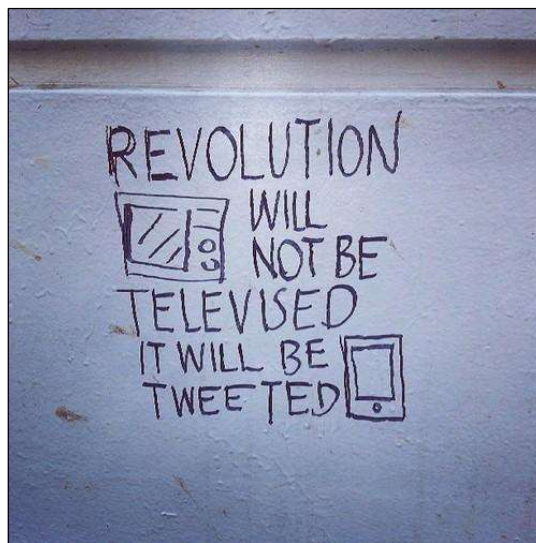 REVOLUTION
WILL
NOT BE
TELEVISED
IT WILL BE
TWEETED